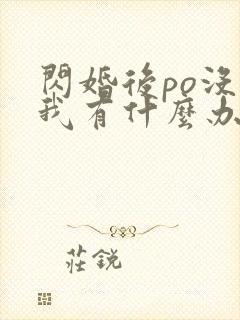 閃婚後po沒
我有什麼办
莊銳